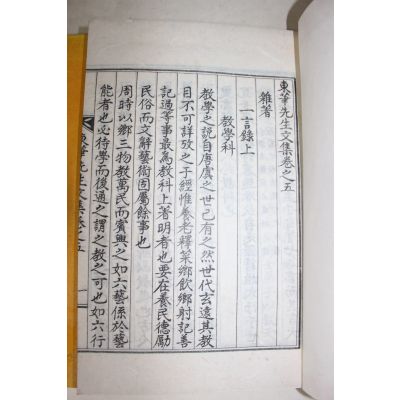 東華先生文集卷之五
雜著
一言錄上
教學科
教學之說自唐虞之世已有之然世代玄遠其教
目不可詳攷之于經惟養老釋菜鄉飲鄉射記善
記過等事最為教科上著明者也要在養民德勵
民俗而文辭藝術固屬餘事也
周時以鄉三物教萬民而賓興之如六藝係於藝
能者也必待學而後通之謂之教之可也如六行
東華先生文集卷之五